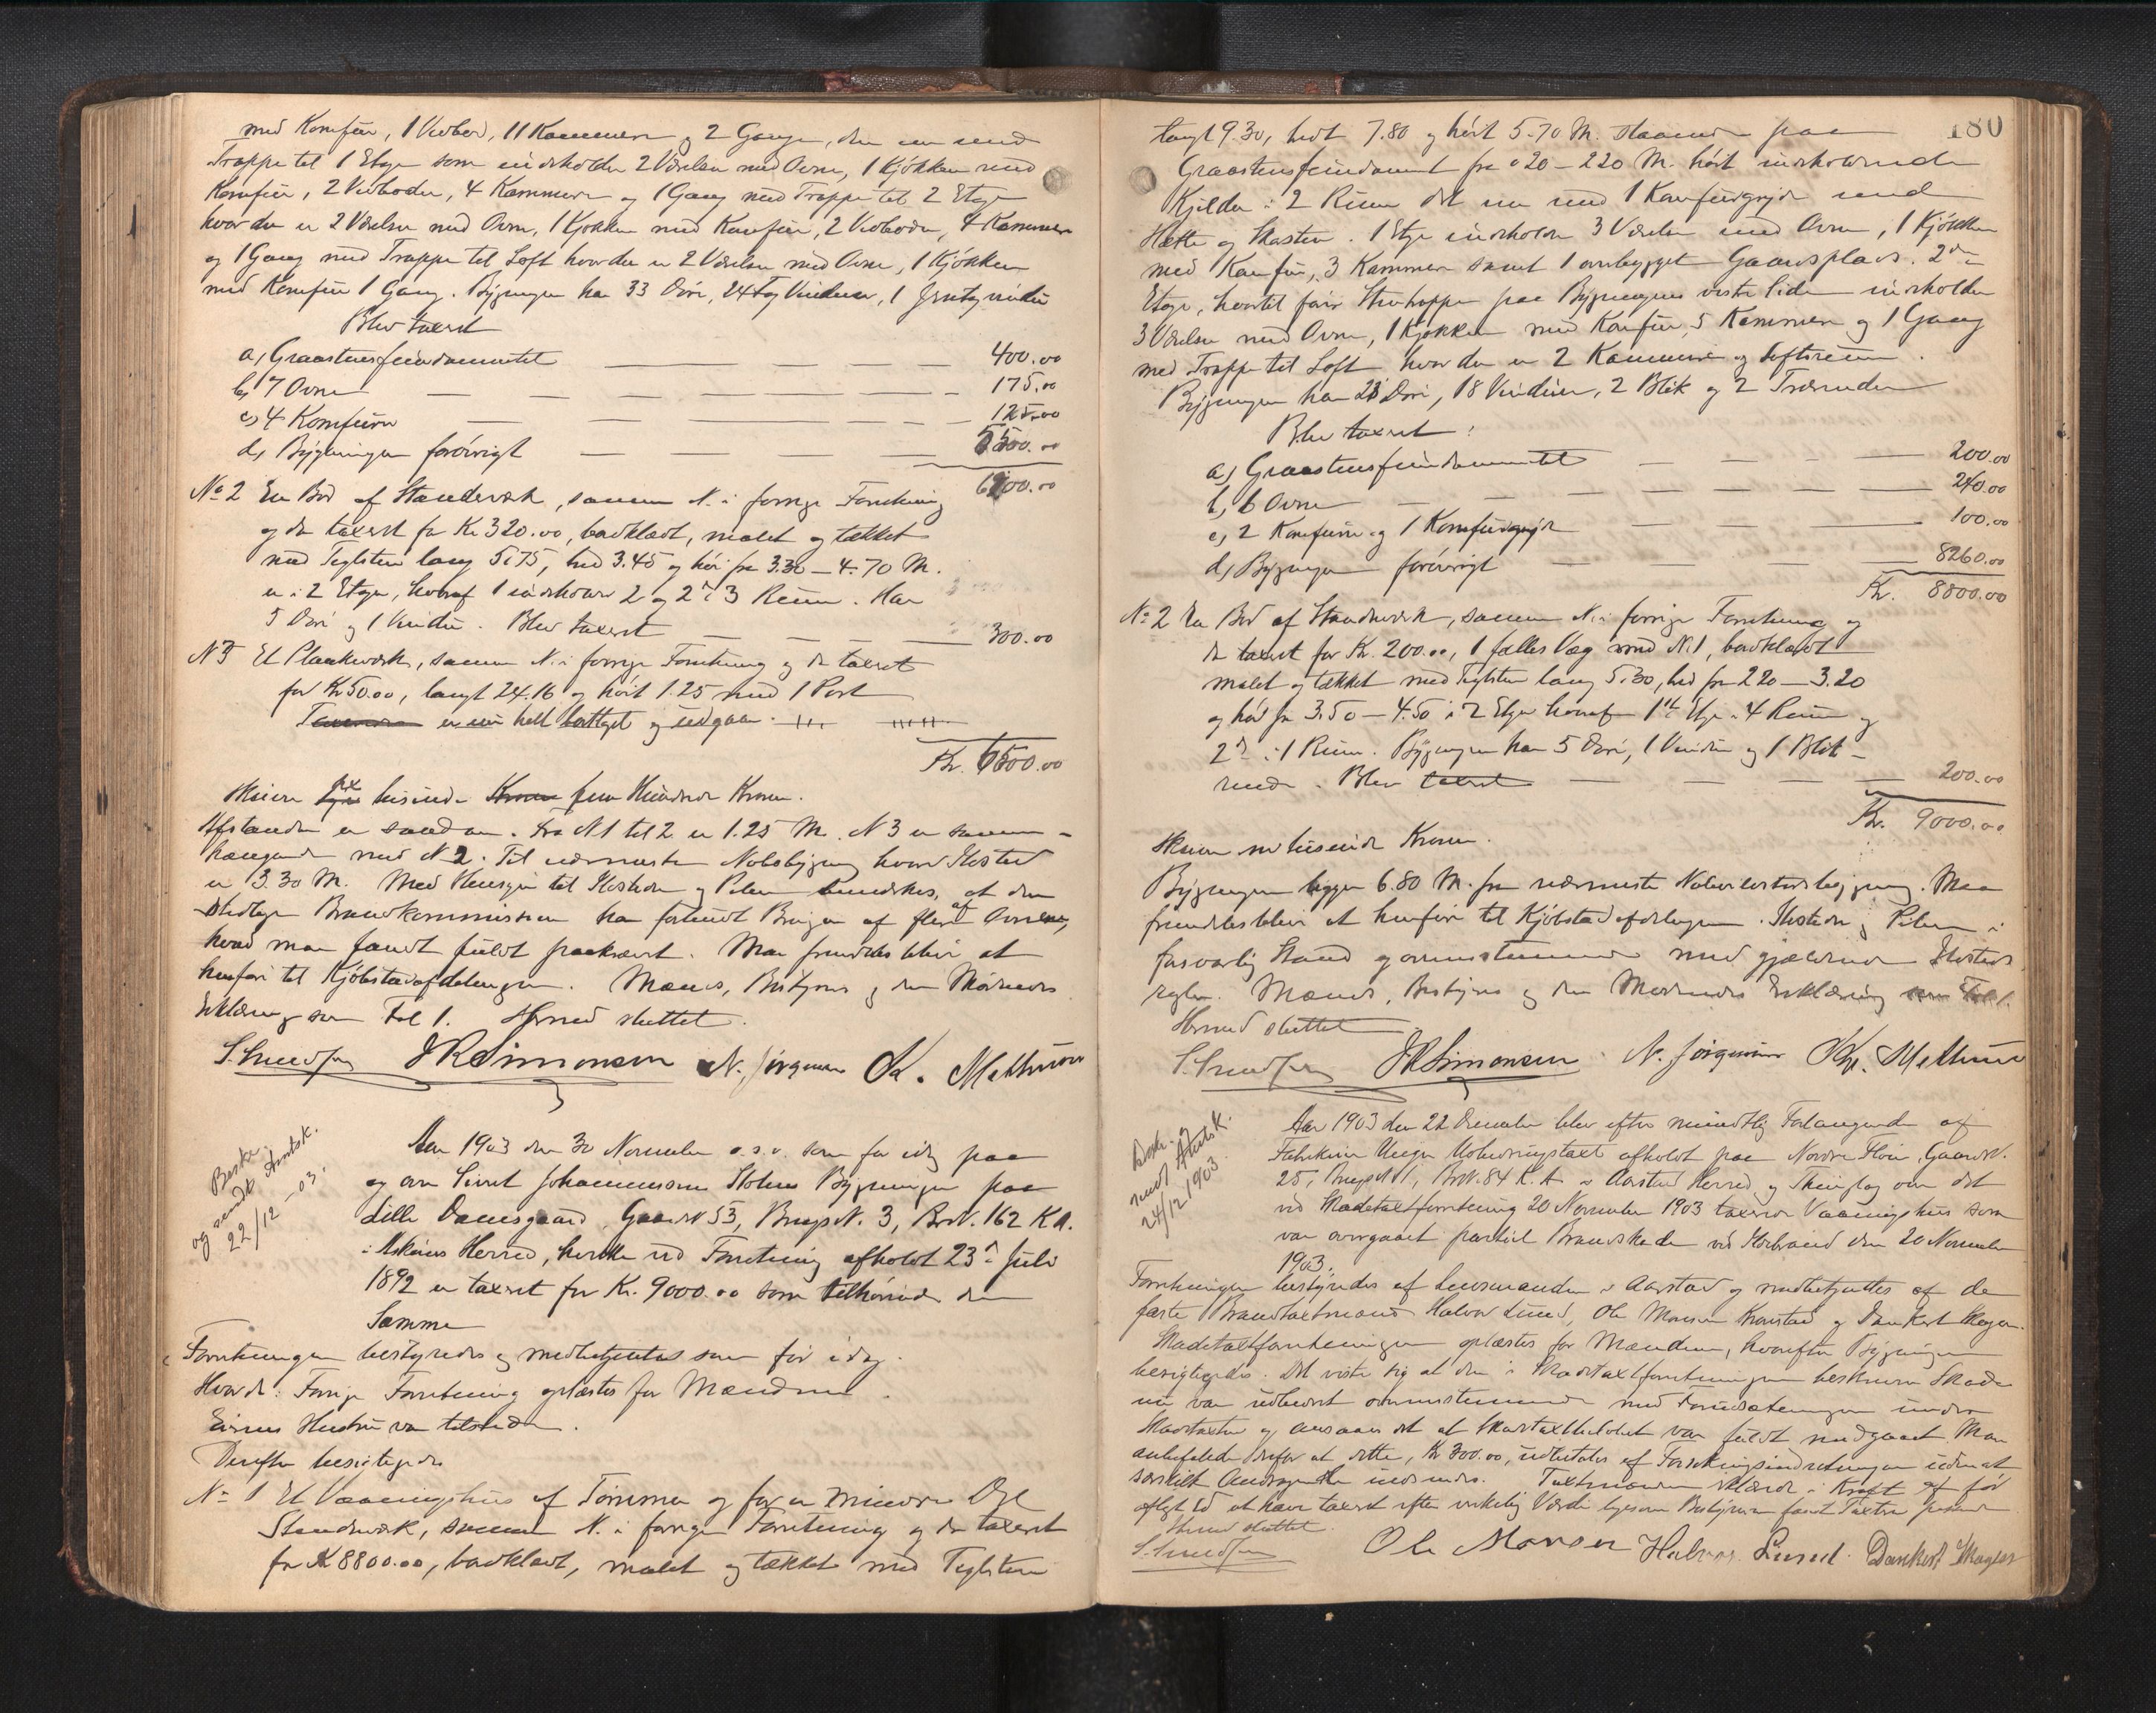 med Komfur, 1 Vedbod, 11 Kammere og 2 Gange, den ene med
Trappe til 1 Etage som indeholder 2 Værelser med Ovne, 1 Kjøkken med
Komfur, 2 Vedboder, 4 Kammere og 1 Gang med Trappe til 2 Etage
hvor der er 2 Værelser med Ovne, 1 Kjøkken med Komfur, 2 Vedboder, 4 Kammere
og 1 Gang med Trappe til Loft hvor der er 2 Værelser med Ovne, 1 Kjøkken
med Komfur 1 Gang. Bygningen har 33 Døre, 24 Fag Vinduer, 1
Blev taxeret
a, Graastensfundamentet 400.00
b, 7 Ovne 175.00
c, 4 Komfurer 125.00
d, Bygningen forøvrigt 5500.00
6200.00
No 2 En Bod af Standerværk, samme N. i forrige Forretning
og da taxeret for Kr 320.00, bordklædt, malet og tækket
med Teglsten lang 5.75, bred 3.45 og høi fra 3.30 – 4.70 M.
er i 2 Etager, hvoraf 1 indeholder 2 og 2den 3 Rum. Har
5 Døre og 1 Vindu. Blev taxeret 300.00
N 3 Et Plankeværk, samme N. i forrige Forretning og da taxeret
for Kr 50.00, langt 24.16 og høit 1.25 med 1 Port
er nu helt borttaget og udgaar.
Kr. 6500.00
Skriver sex tusinde fem Hundrede Kroner.
Afstanden er saadan. Fra N 1 til 2 er 1.25 M. N 3 er sammen-
hængende med N 2. Til nærmeste Nabobygning hvori Ildsted
er 3.30 M. Med Hensyn til Ildsteder og Piber bemærkes, at den
stedlige Brandkommission har forbudt Brugen af flere af Ovnene,
hvad man fandt fuldt paakrævet. Man fremdeles blive at
henføre til Kjøbstadafdelingen. Mænds, Bestyrers og den Mødendes
Erklæring som Fol 1. Hermed sluttet.
S. JRSimonsen N. Jørgensen K. Methum
Besk.
og sendt Amtsk.
22/12 – 03.
Aar 1903 den 30 November o.s.v. som før idag paa
og over Sivert Johannessen Holms Bygninger paa
Lille Damsgaard, Gaards N 53, Brugs N. 3, Br.N. 162 K.A.
i Askøens Herred, hvilke ved Forretning afholdt 23de Juli
1892 er taxeret for Kr. 9000.00 som tilhørende den
Samme
Forretningen bestyredes og medbetjentes som før idag.
Hvorda: Forrige Forretning oplæstes for Mændene.
Eierens Hustru var tilstede.
Derefter besigtigedes
No 1 Et Vaaningshus af Tømmer og for en mindre Del
Standerværk, samme N. i forrige Forretning og da taxeret
for Kr 8800.00, bordklædt, malet og tækket med Teglsten
180
langt 9.30, bredt 7.80 og høit 5.70 M. staaende paa
Graastensfundament fra 0.20 – 2.20 M. høit indeholdende
Kjelder i 2 Rum det ene med 1 Komfurgryde med
Hætte og Skorsten. 1 Etge indeholder 3 Værelser med Ovne, 1 Kjøkken
med Komfur, 3 Kammer samt 1 overbygget Gaardsplads. 2den
Etage, hvortil fører Stentrappe paa Bygningens vestre Side indeholder
3 Værelser med Ovne, 1 Kjøkken med Komfur, 5 Kammere og 1 Gang
med Trappe til Loft hvor der er 2 Kammere og Loftsrum.
Bygningen har 23 Døre, 18 Vinduer, 2 Blik og 2 Trærender
Blev taxeret:
a, Graastensfundamentet 200.00
b, 6 Ovne 240.00
c, 2 Komfurer og 1 Komfurgryde 100.00
d, Bygningen forøvrigt 8260.00
Kr. 8800.00
No 2 En Bod af Standerværk, samme N. i forrige Forretning og
da taxeret for Kr. 200.00, 1 fælles Væg med N. 1, bordklædt
malet og tækket med Teglsten lang 5.30, bred fra 2.20 – 3.20
og høi fra 3.50 – 4.50 i 2 Etger hvoraf 1ste Etge i 4 Rum og
2den i 1 Rum. Bygningen har 5 Døre, 1 Vindu og 1 Blik-
rende. Blev taxeret 200.00
Kr. 9000.00
Skriver ni tusinde Kroner.
Bygningen ligger 6.80 M. fra nærmeste Naboildstedsbygning. Maa
fremdeles blive at henføre til Kjøbstadafdelingen. Ildsteder og Piber i
forsvarlig Stand og overensstemmende med gjældende Ildsteds
regler. Mænds, Bestyrers og den Mødendes Erklæring som Fol 1.
Hermed sluttet
S. JRSimonsen N. Jørgensen K. Methum
Besk. og
sendt Amtsk.
24/12 1903.
Aar 1903 den 22 December blev efter mundtlig Forlangende af
Fabrikeier afholdt paa Nordre Gaards N.
25, Brugs N 1, Br.N. 84 K. A. i Aarstad Herred og Thinglag over det
ved Skadetaxtforretning 20 November 1903 taxerede Vaaningshus som
var overgaaet partiel Brandskade ved Ildebrand den 20 November
1903.
Forretningen bestyredes af Lensmanden i Aarstad og medbetjentes af de
faste Brandtaxtmænd Halvor Lund, Ole Monsen og Dankert Mager.
Skadetaxtforretningen oplæstes for Mændene, hvorefter Bygningen
besigtigedes. Det viste sig at den i Skadetaxtforretningen beskrevne Skade
nu var udbedret overensstemmende med Forudsætningen under
Skadetaxten og ansaaes det at Skadetaxtbeløbet var fuldt medgaaet. Man
anbefalede derfor at dette, Kr 300.00, udbetales af Forsikringsindretningen uden at
særskilt Andragende indsendes. Taxtmændene erklærede i Kraft af før
aflagt Ed at have taxeret efter virkelig Værdi ligesom Bestyreren fandt Taxten passende
Hermed sluttet.
S. Ole Monsen Halvor Lund. Dankert Mager